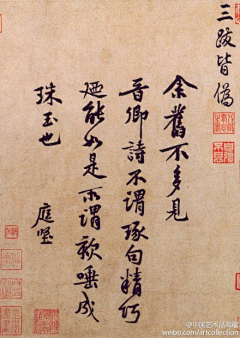 三跋皆偽
余舊不多見
晉卿詩不謂琢句精巧
廼能如是所謂欬唾成
珠玉也
庭堅
@中国艺术品收藏
weibo.com/artcollection